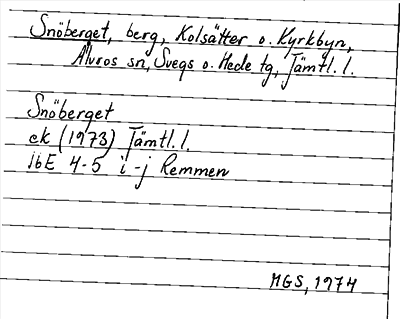 Snöberget, berg, Kolsätter o. Kyrkbyn,
Älvros sn, Svegs o. Hede tg, Jämtl. l.
Snöberget
ek (1973) Jämtl. l.
16E 4-5 i-j Remmen
MGS, 1974